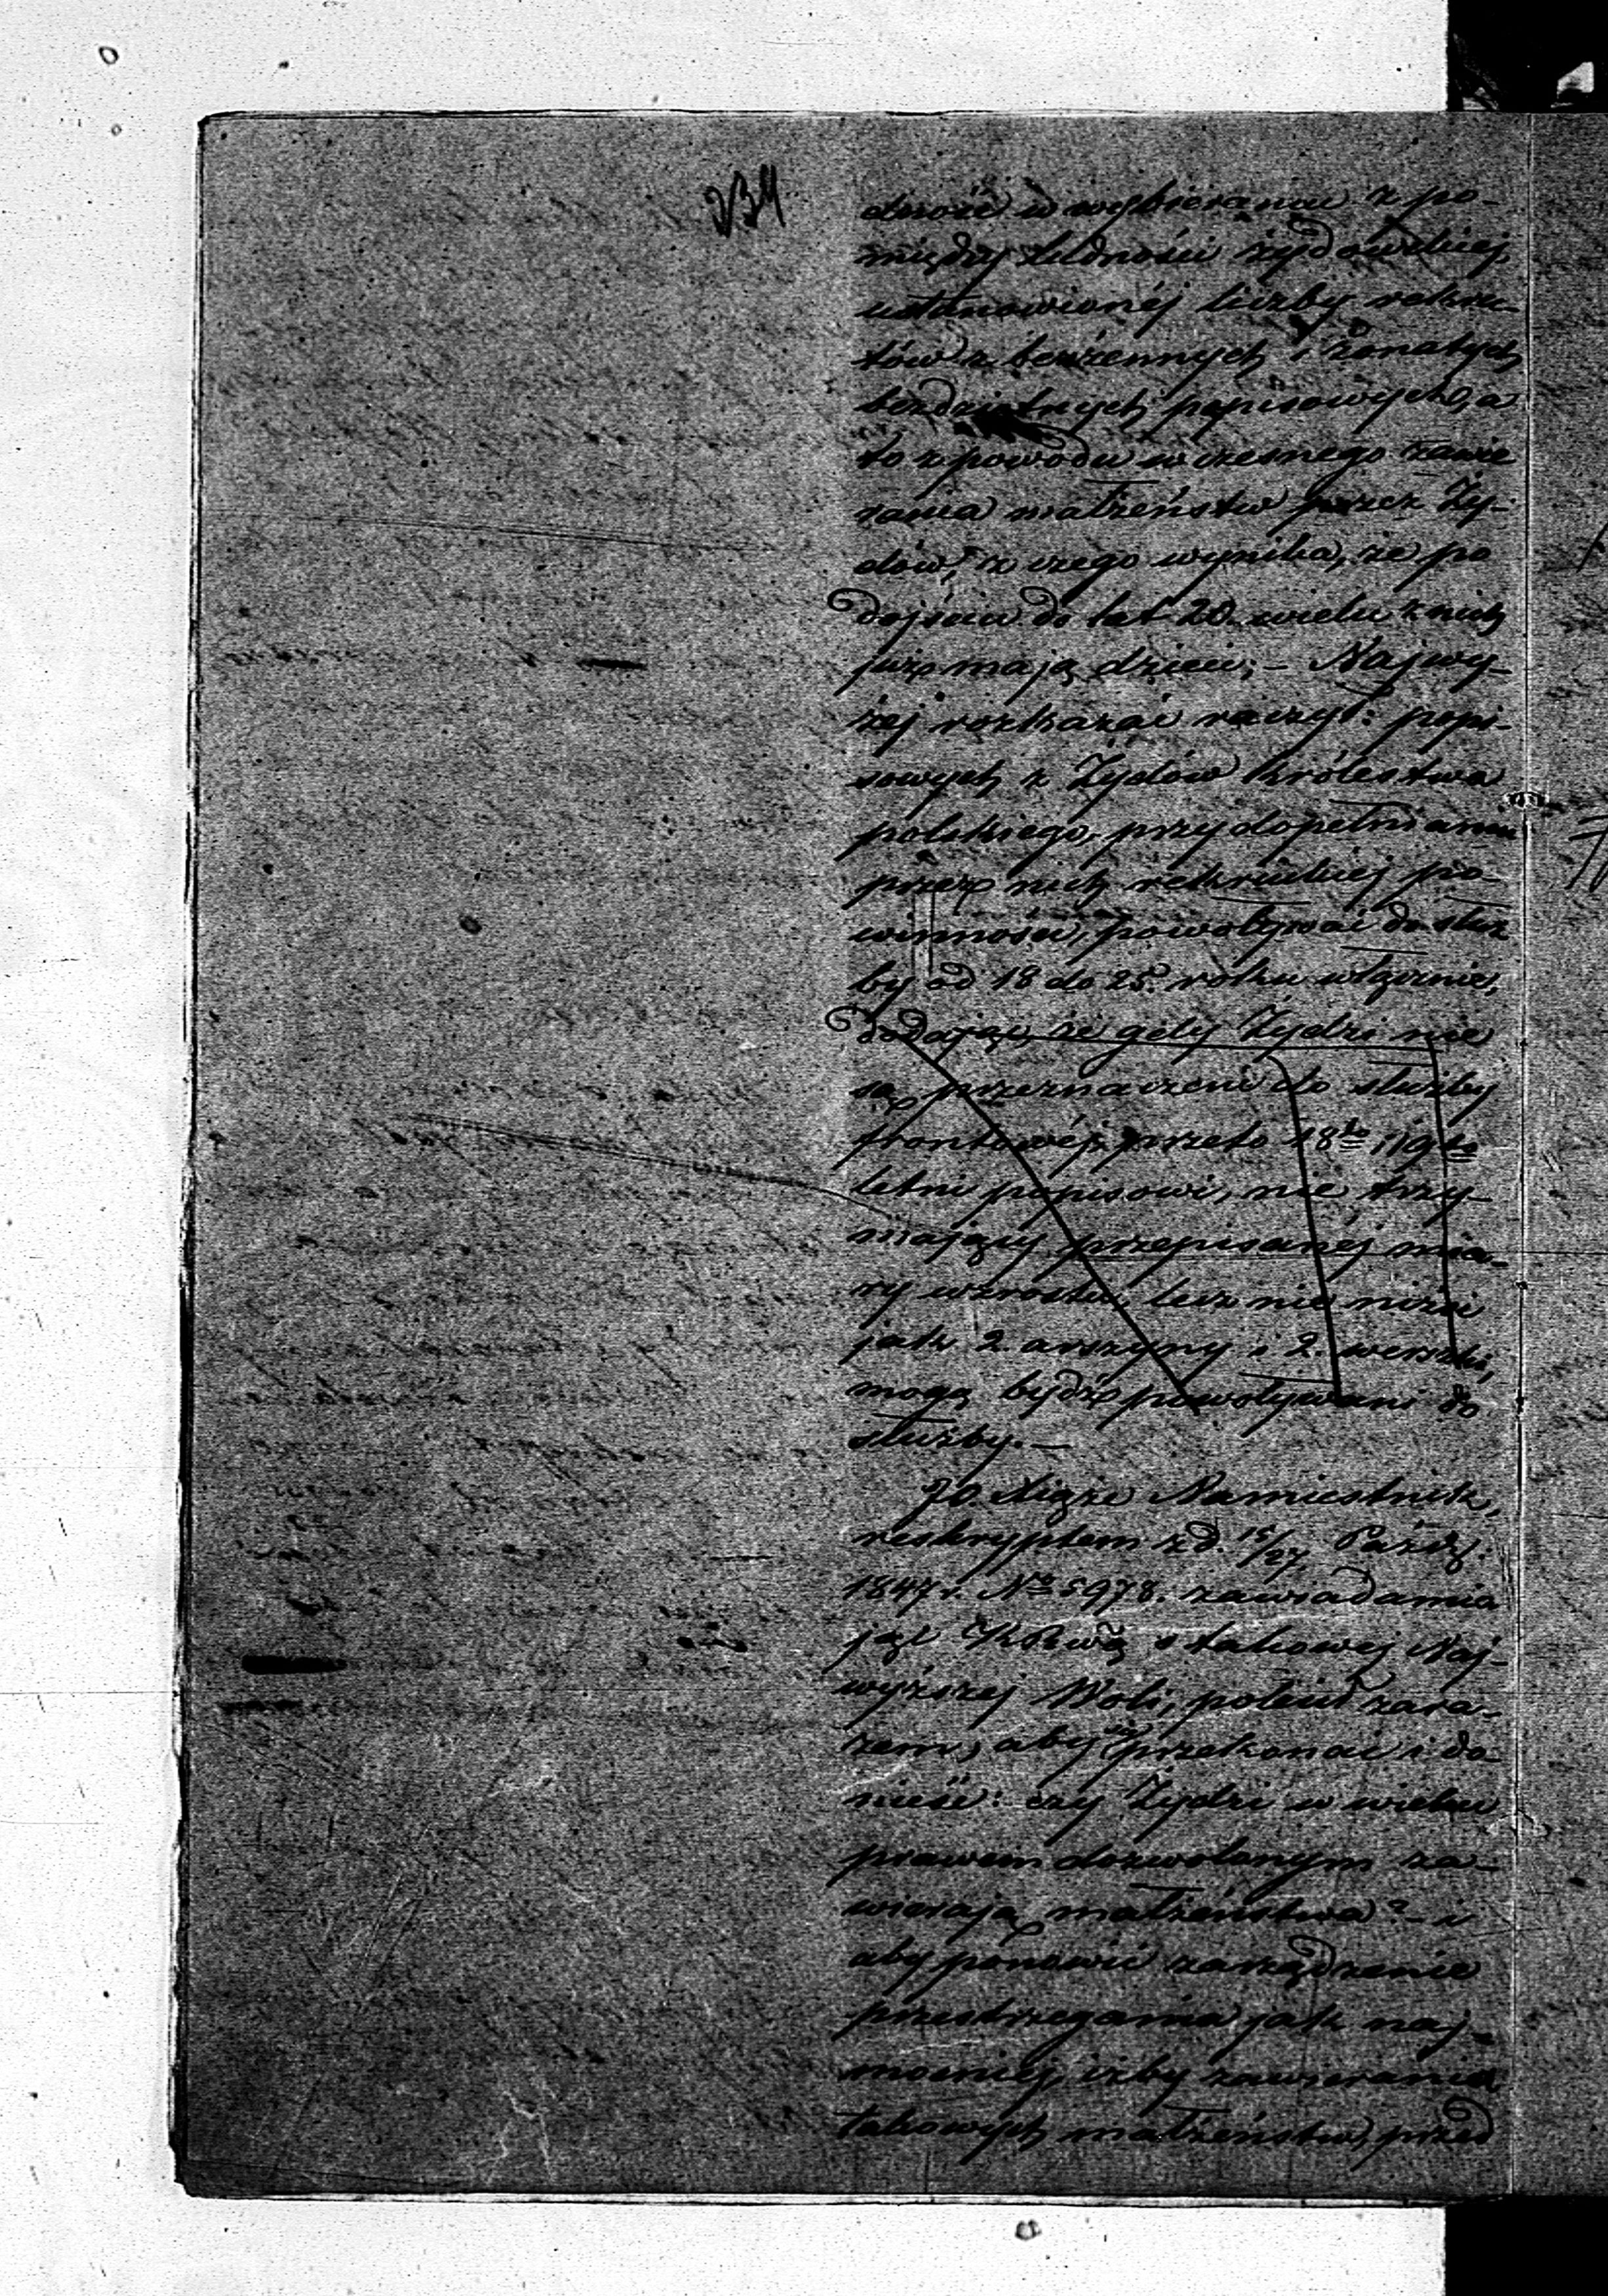 234
dność w wybieraniu z po-
między ludności żydowskiej,
ustanowionéj liczby rekru-
tów z bezżennych i żonatych
bezdzietnych popisowych, a
to z powodu wczesnego zawie
rania małżeństw przez Ży-
dów, z czego wynika, że po
dojściu do lat 20. wielu z nich
już mają dzieci; – Najwy-
żej rozkazać raczył: popi-
sowych z Żydów Królestwa
polskiego, przy dopełnianiu
przez nich rekruckiej po-
winności, powoływać do służ
by od 18 do 25. roku włącznie,
dodając, że gdy Żydzi nie
są przeznaczeni do służby
frontowéj, przeto 18to i 19to
letni popisowi, nie trzy-
mający przepisanéj mia-
ry wzrostu, lecz nie niżsi
jak 2. arszyny i 2. werszki,
mogą bydź powoływani do
służby. –
JO. Xiąże Namiestnik,
reskryptem z d. 15/27 Paździ.
1847 r. No 5978. zawiadamia
jąc o takowej Naj-
wyższej Woli, polecił zara-
zem, aby się przekonać i do-
nieść: czy Żydzi w wieku
prawem dozwolonym za-
wierają małżeństwa? – i
aby ponowić zarządzenie
przestrzegania jak naj-
mocniej, iżby zawierania
takowych małżeństw, przed